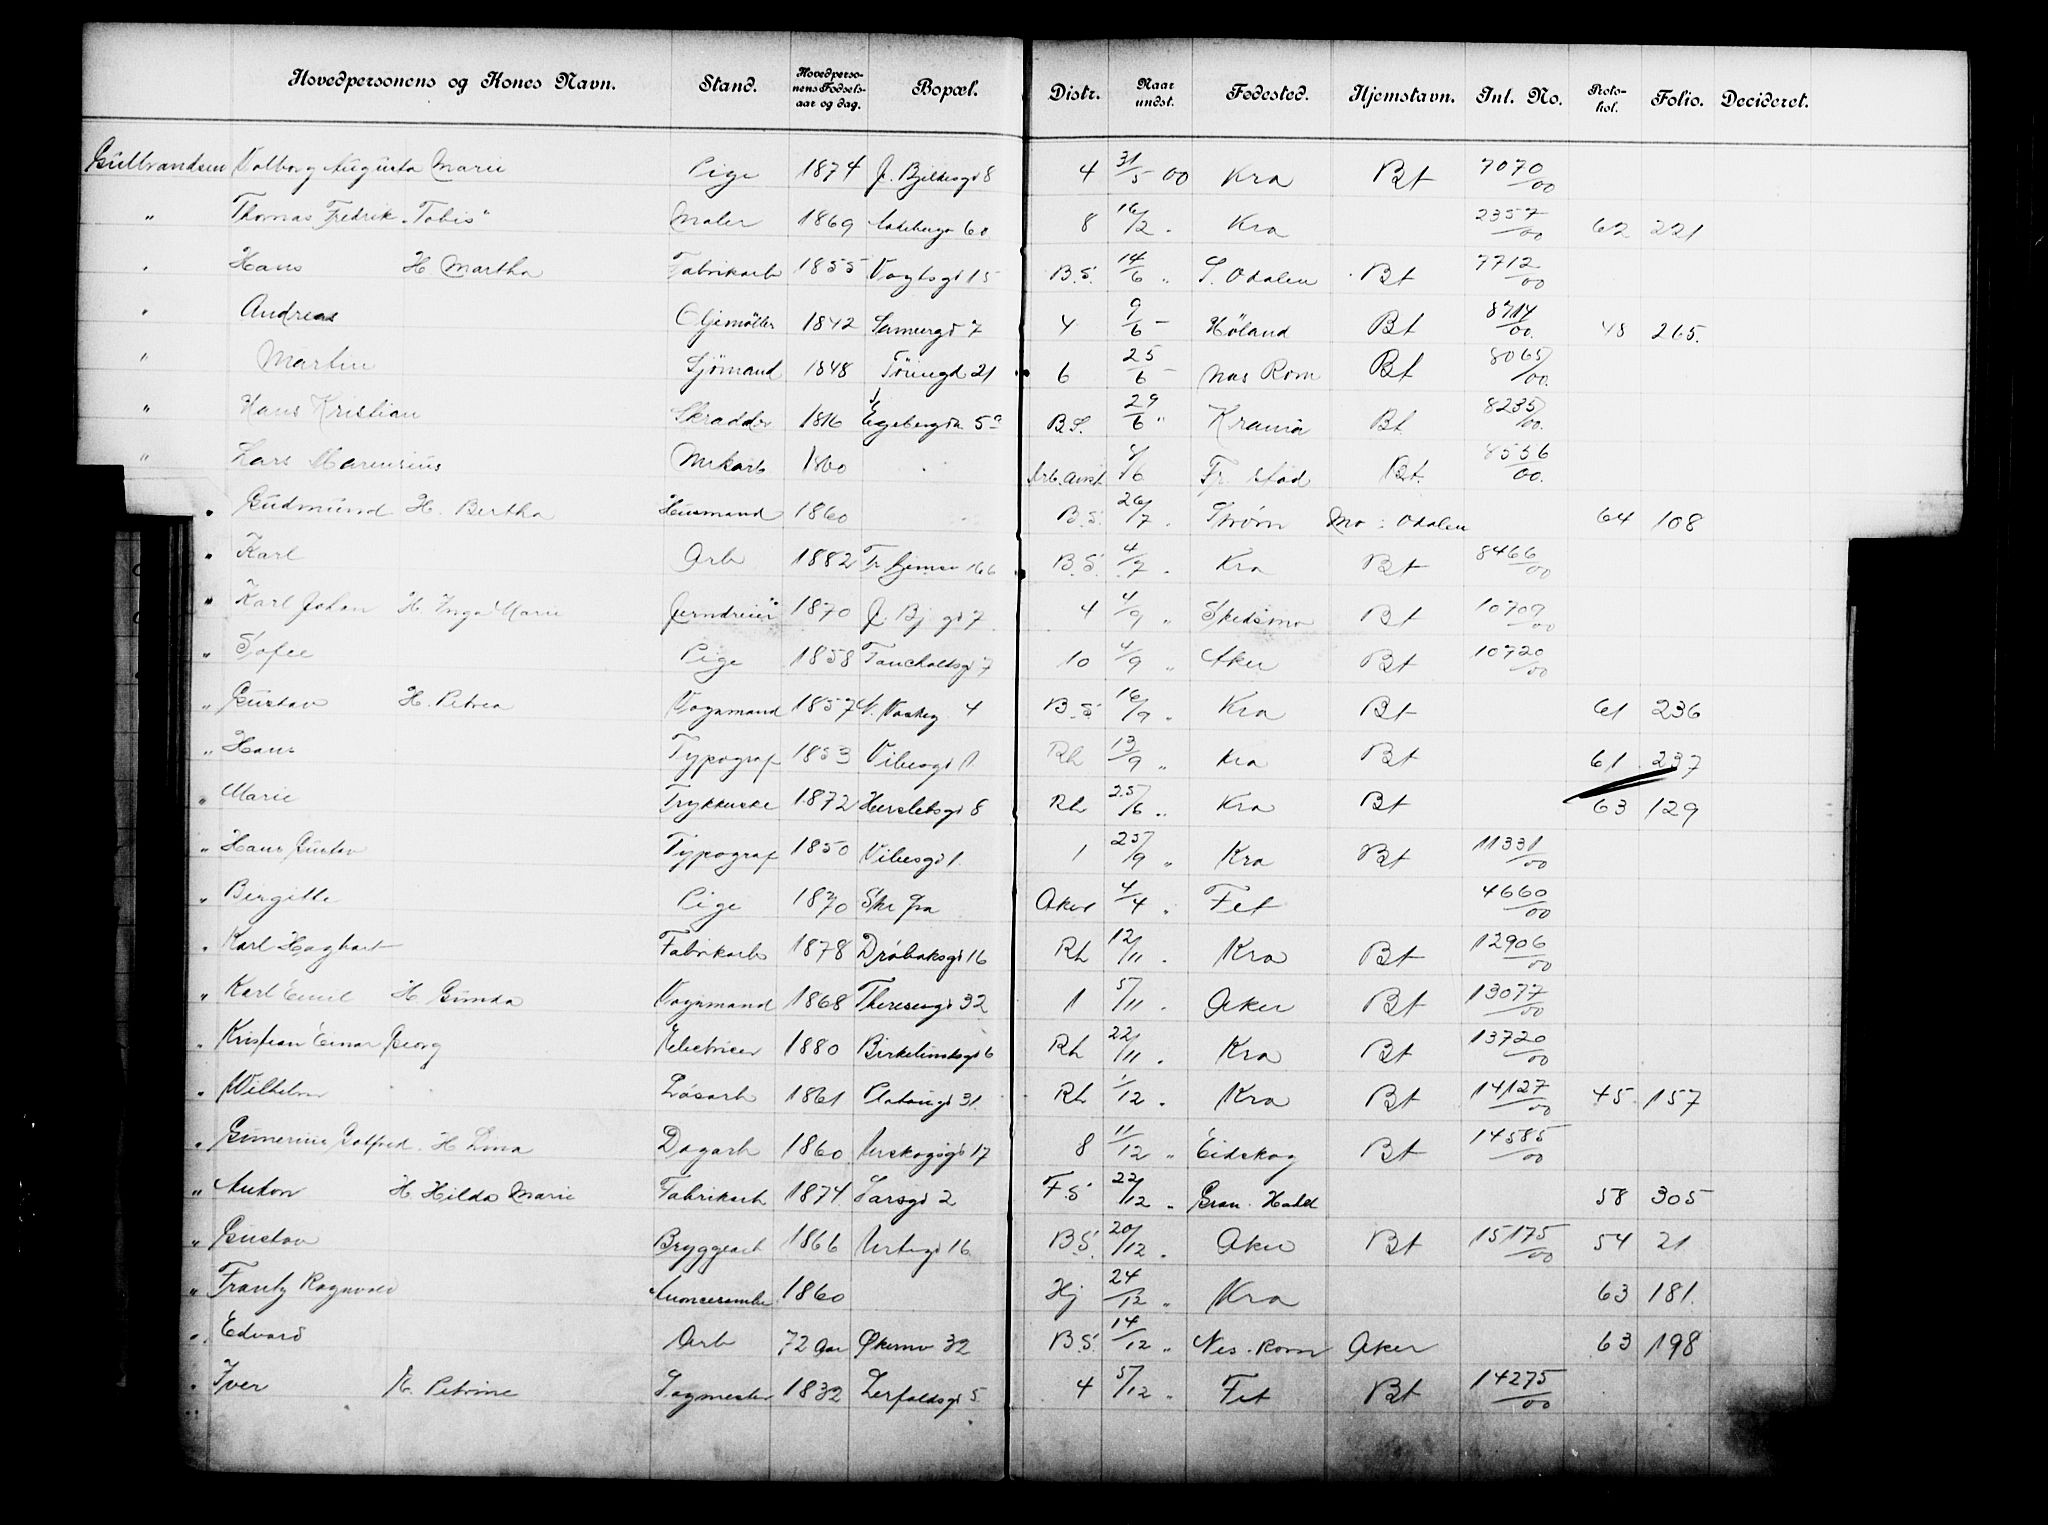 Hovedpersonens og Kones Navn. Stand. Hovedpersonens Fødselsaar og dag. Bopæl. Distr. Naar undst. Fødested. Hjemstavn. Inl. No. Protokol. Folio. Decideret.
Gulbrandsen Valborg Augusta Marie Pige 1874 J. Bjelkesgd 8 4 31/5 00 Kra Bt 7070/00
" Thomas Fredrik "Tobis" Maler 1869 68 8 16/2 Kra 2357/00 62 221
" Hans H Martha Fabrikarb 1855 Vogtsgd 15 B.S. 14/6 " S. Odalen Bt 7712/00
" Andreas Oljemøller 1842 7 4 9/6 - Høland Bt 8714/00. 48 265.
" Martin Sjømand 1848 Tøiengd 21 6 25/6 - Næs Rom Bt 8065/00.
" Hans Kristian Skrædder 1816 Egebergsv 5a B.S. 29/6 " Krania Bt 8235/00.
" Lars Marensius Murkarb 1860 Arb. anst 6 Fr. stad Bt. 8556/00.
" Gudmund H. Bertha Husmand 1860 B.S. 26/7. Strøm Mo: Odalen 64 108
" Karl Arb 1882 166 B.S. 4/7. Kra Bt 8466/00
" Karl Johan H. Inga Marie Jerndreier 1870 J. Bj gd 7 4 4/9 " Skedsmo Bt 10709/00
" Sofie Pige 1858 Fauchaldsgd 7 10 4/9 " Aker Bt 10720/00
" Gustav H. Petrea Vognmand 1857 N. Vaskeg 4 B.S. 16/9 " Kra Bt 61 236
" Hans Typograf 1853 Vibesgd 1 Rh 13/9 " Kra Bt 61 237
" Marie Trykkerske 1872 Herslebsgd 8 Rh 25/6 " Kra Bt 63 129
" Hans Gustav Typograf 1850 Vibesgd 1. 1 25/9 " Kra Bt 11331/00
" Birgitte Pige 1870 Aker 4/4 " Fet 4660/00
" Karl Hagbart Fabrikarb 1878 Drøbaksgd 16 Rh 12/11. Kra Bt 12906/00
" Karl Emil H Gunda Vognmand 1868 Theresesgd 32 1 5/11. Aker Bt 13077/00
" Kristian Einar Georg Electricer 1880 Birkelundsgd 6 Rh 22/11. Kra Bt 13720/00
" Wilhelm Løsarb 1861 Platousgd 31 Rh 1/12. Kra Bt 14127/00 45 157
" Gunerius Gotfred. H Lina Dagarb 1860 Urskogsgd 17 8 11/12 " Eidskog Bt 14585/00
" Anton H Hilda Marie Fabrikarb 1874 Larsgd 2 F.S 22/12 " Gran. Hadel 58 305
" Gustav Bryggearb 1866 Urtegd 16 B.S. 20/12. Aker Bt 15175/00 54 21
" Frantz Ragnvald 1860 Hj 24/12 " Kra 63 181.
" Edvard Arb 72 Aar Økernv 32 B.S. 14/12 " Nes. Rom Aker 63 198
" Iver H. Petrine Sagmester 1832 Herfoldsgd 5 4 5/12 " Fet Bt 14275/00